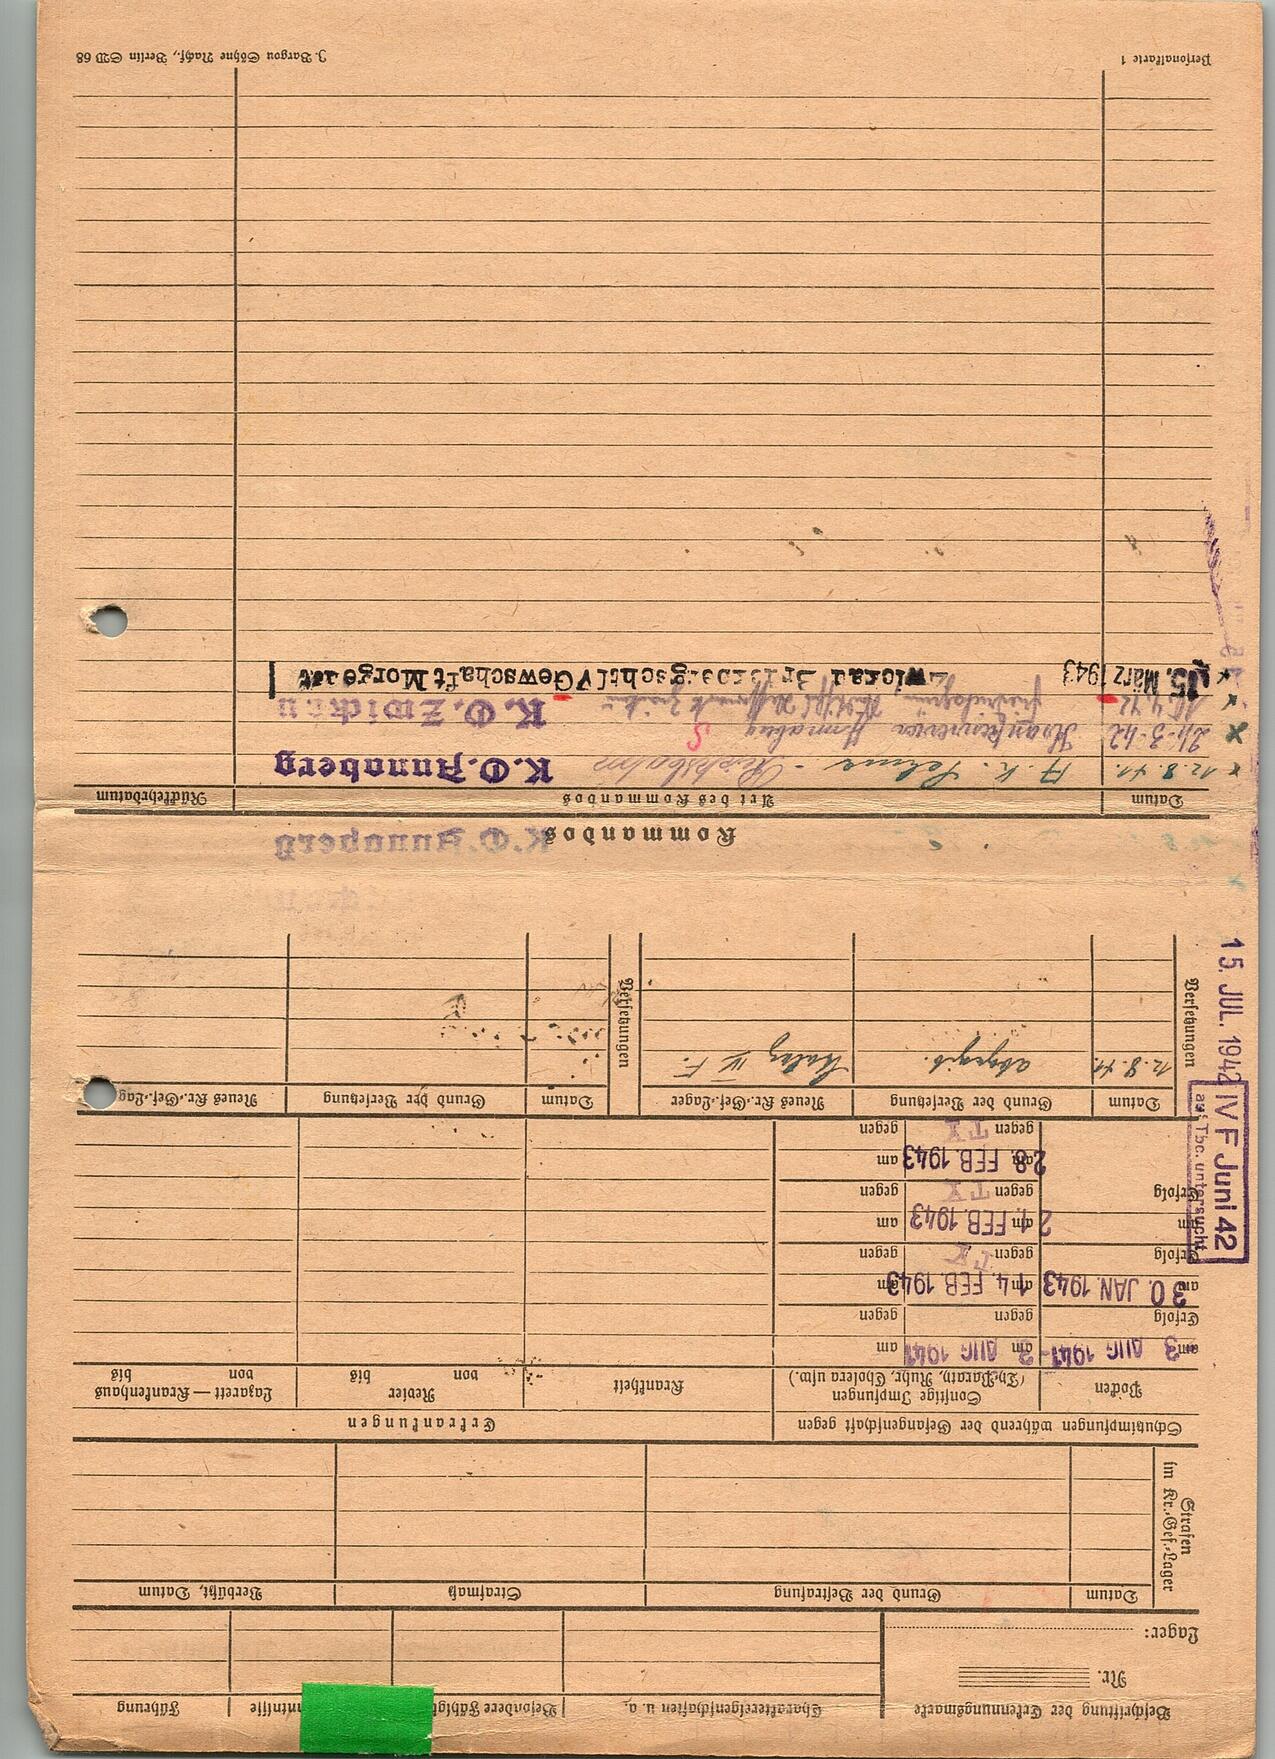 Beschriftung der Erkennungsmarke
Nr.
Lager:
Charaktereigenschaften u. a.
Besondere Fähig
ntnisse
Führung
Strafen
im Kr.-Gef.-Lager
Datum
Grund der Bestrafung
Strafmaß
Verbüßt, Datum
Schutzimpfungen während der Gefangenschaft gegen
Erkrankungen
Pocken
Sonstige Impfungen
(Th.Parath, Ruhr, Cholera usw.)
Krankheit
Revier
von bis
Lazarett — Krankenhaus
von bis
am 3 AUG 1941
am 3. AUG 1941
am
Erfolg
gegen
gegen
am 30. JAN. 1943
am 14. FEB. 1943
am
Erfolg
gegen TY
gegen
am
am 21. FEB. 1943
am
Erfolg
gegen TY
gegen
am 28. FEB. 1943
am
gegen TY
gegen
IV F Juni 42
auf Tbc. untersucht
15. JUL. 1942
Versetzungen
Datum
Grund der Versetzung
Neues Kr.-Gef.-Lager
Versetzungen
Datum
Grund der Versetzung
Neues Kr.-Gef.-Lager
12.8.41.
Stalag IV F.
Kommandos
K.O. Annaberg
Datum
Art des Kommandos
Rückkehrdatum
12.8.41. A.K. Sehma - Reichsbahn K.O. Annaberg
24.3.42 Krankenrevier Annaberg
K.O. Zwickau
15. März 1943 Zwickau Gewschaft Morge
Personalkarte 1
J. Bargou Söhne Nachf., Berlin SW 68